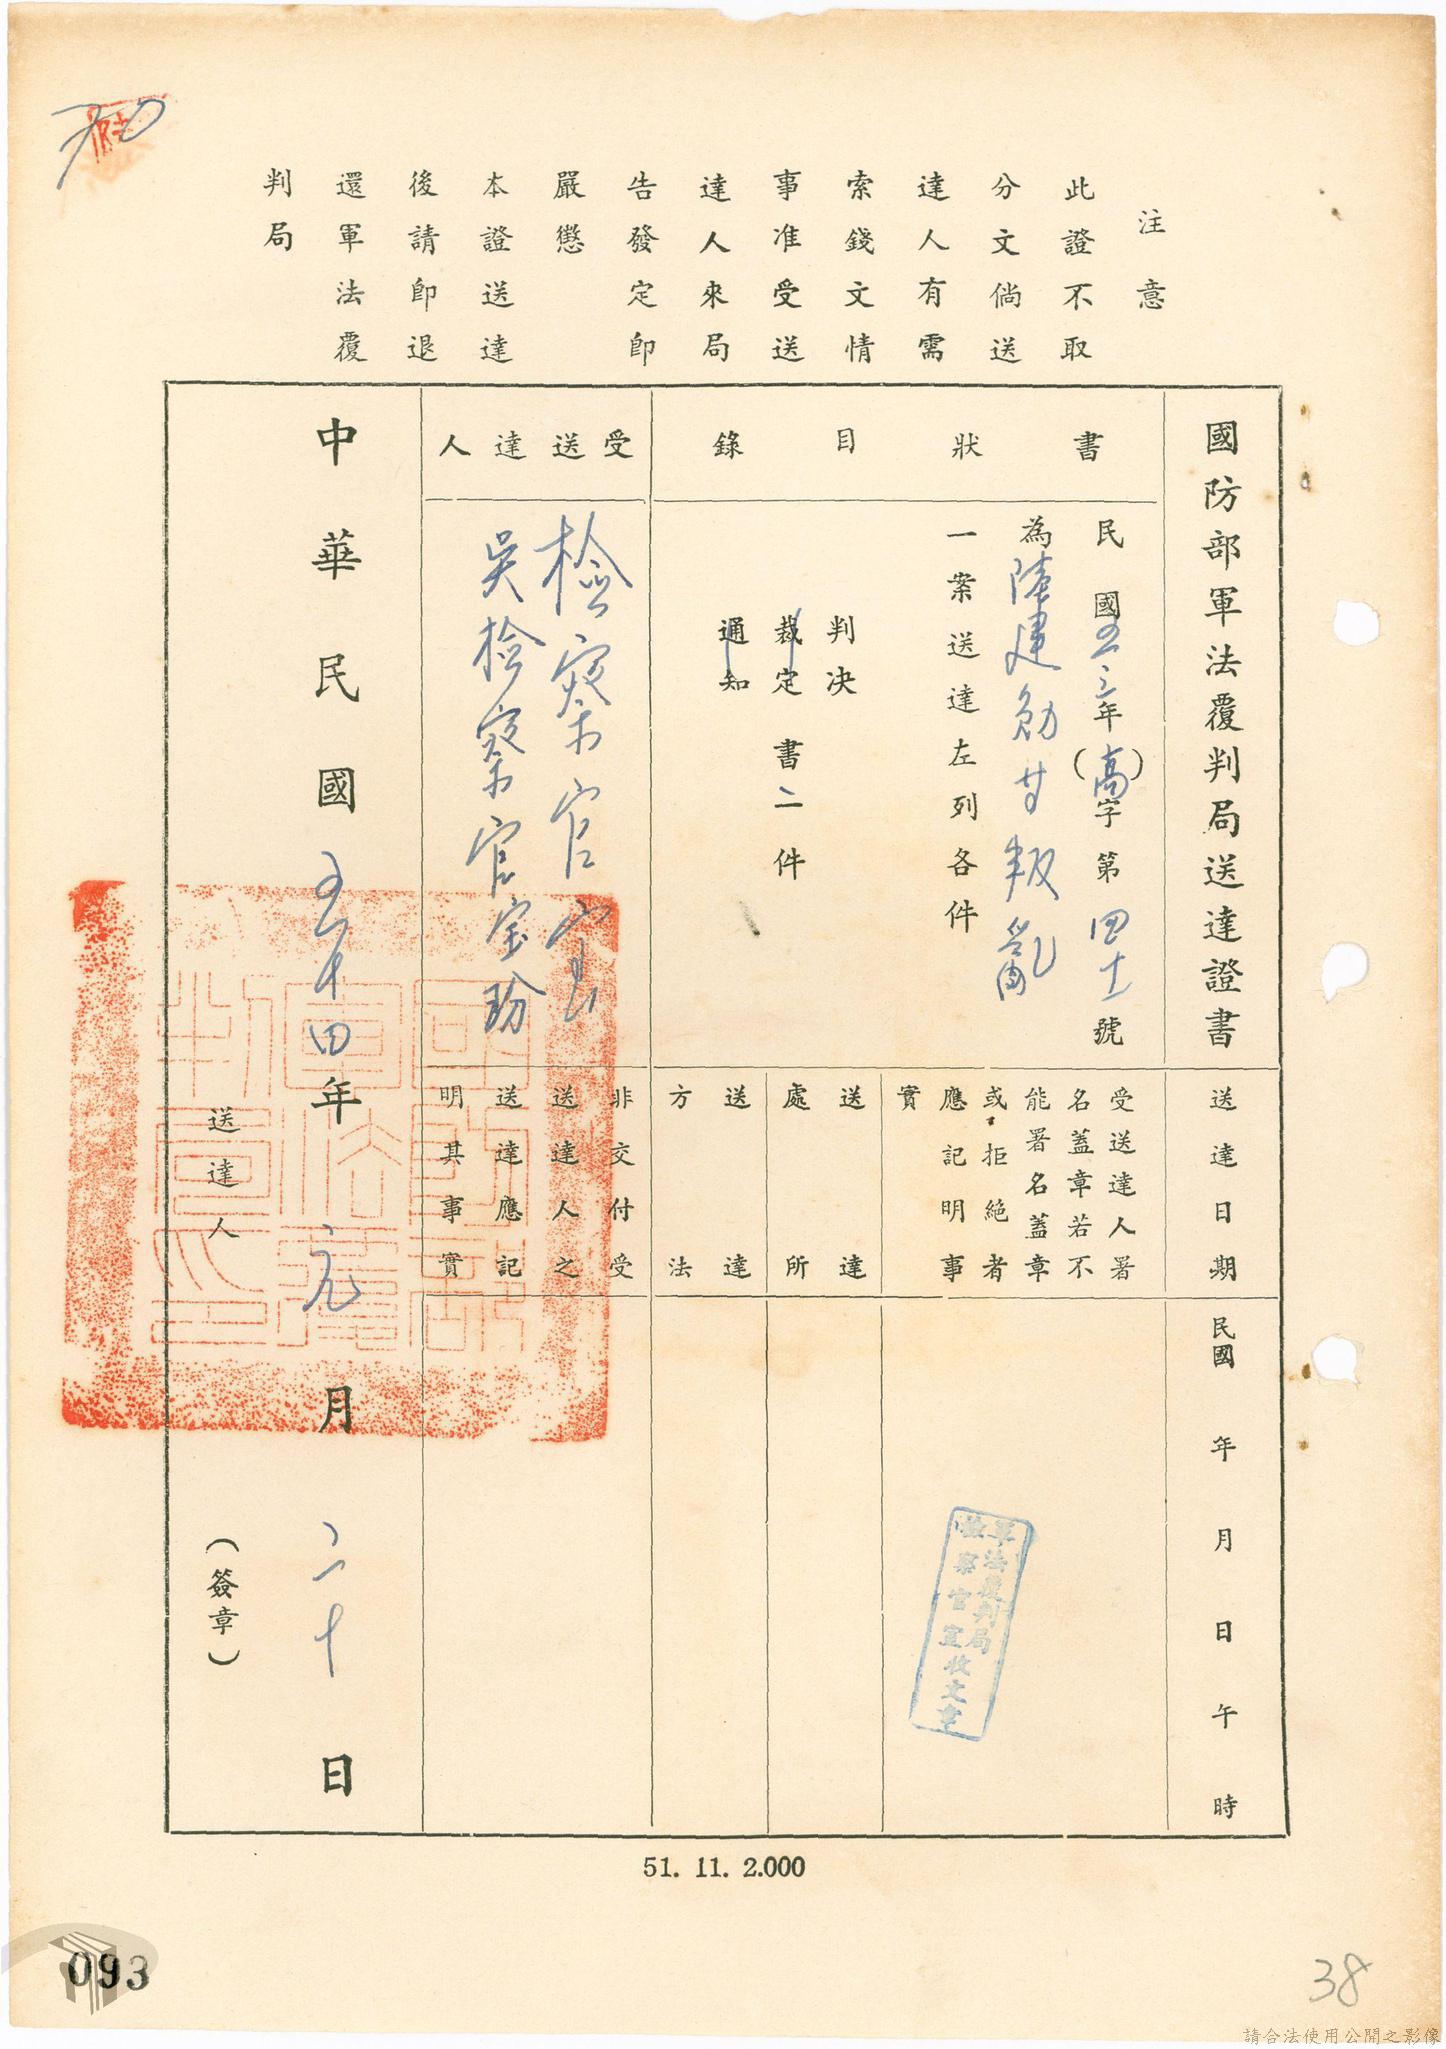 注意
此證不取
分文倘送
達人有需
索錢文情
事准受送
達人來局
告發定即
嚴懲
本證送達
後請即退
還軍法覆
判局
國防部軍法覆判局送達證書
書狀目錄
民國五三年(高)字第四十號
為陳建勛等叛亂
一案送達左列各件
判決
裁定書二件
通知
受送達人
檢察官室
吳檢察官室玢
送達日期
民國 年 月 日 午 時
受送達人署
名蓋章若不
能署名蓋章
或拒絕者
應記明事
實
送達
處所
送達
方法
非交付受
送達人之
送達應記
明其事實
中華民國五十四年元月二十日
送達人
(簽章)
軍法覆判局
檢察官室收文章
51. 11. 2.000
093
38
請合法使用公開之影像